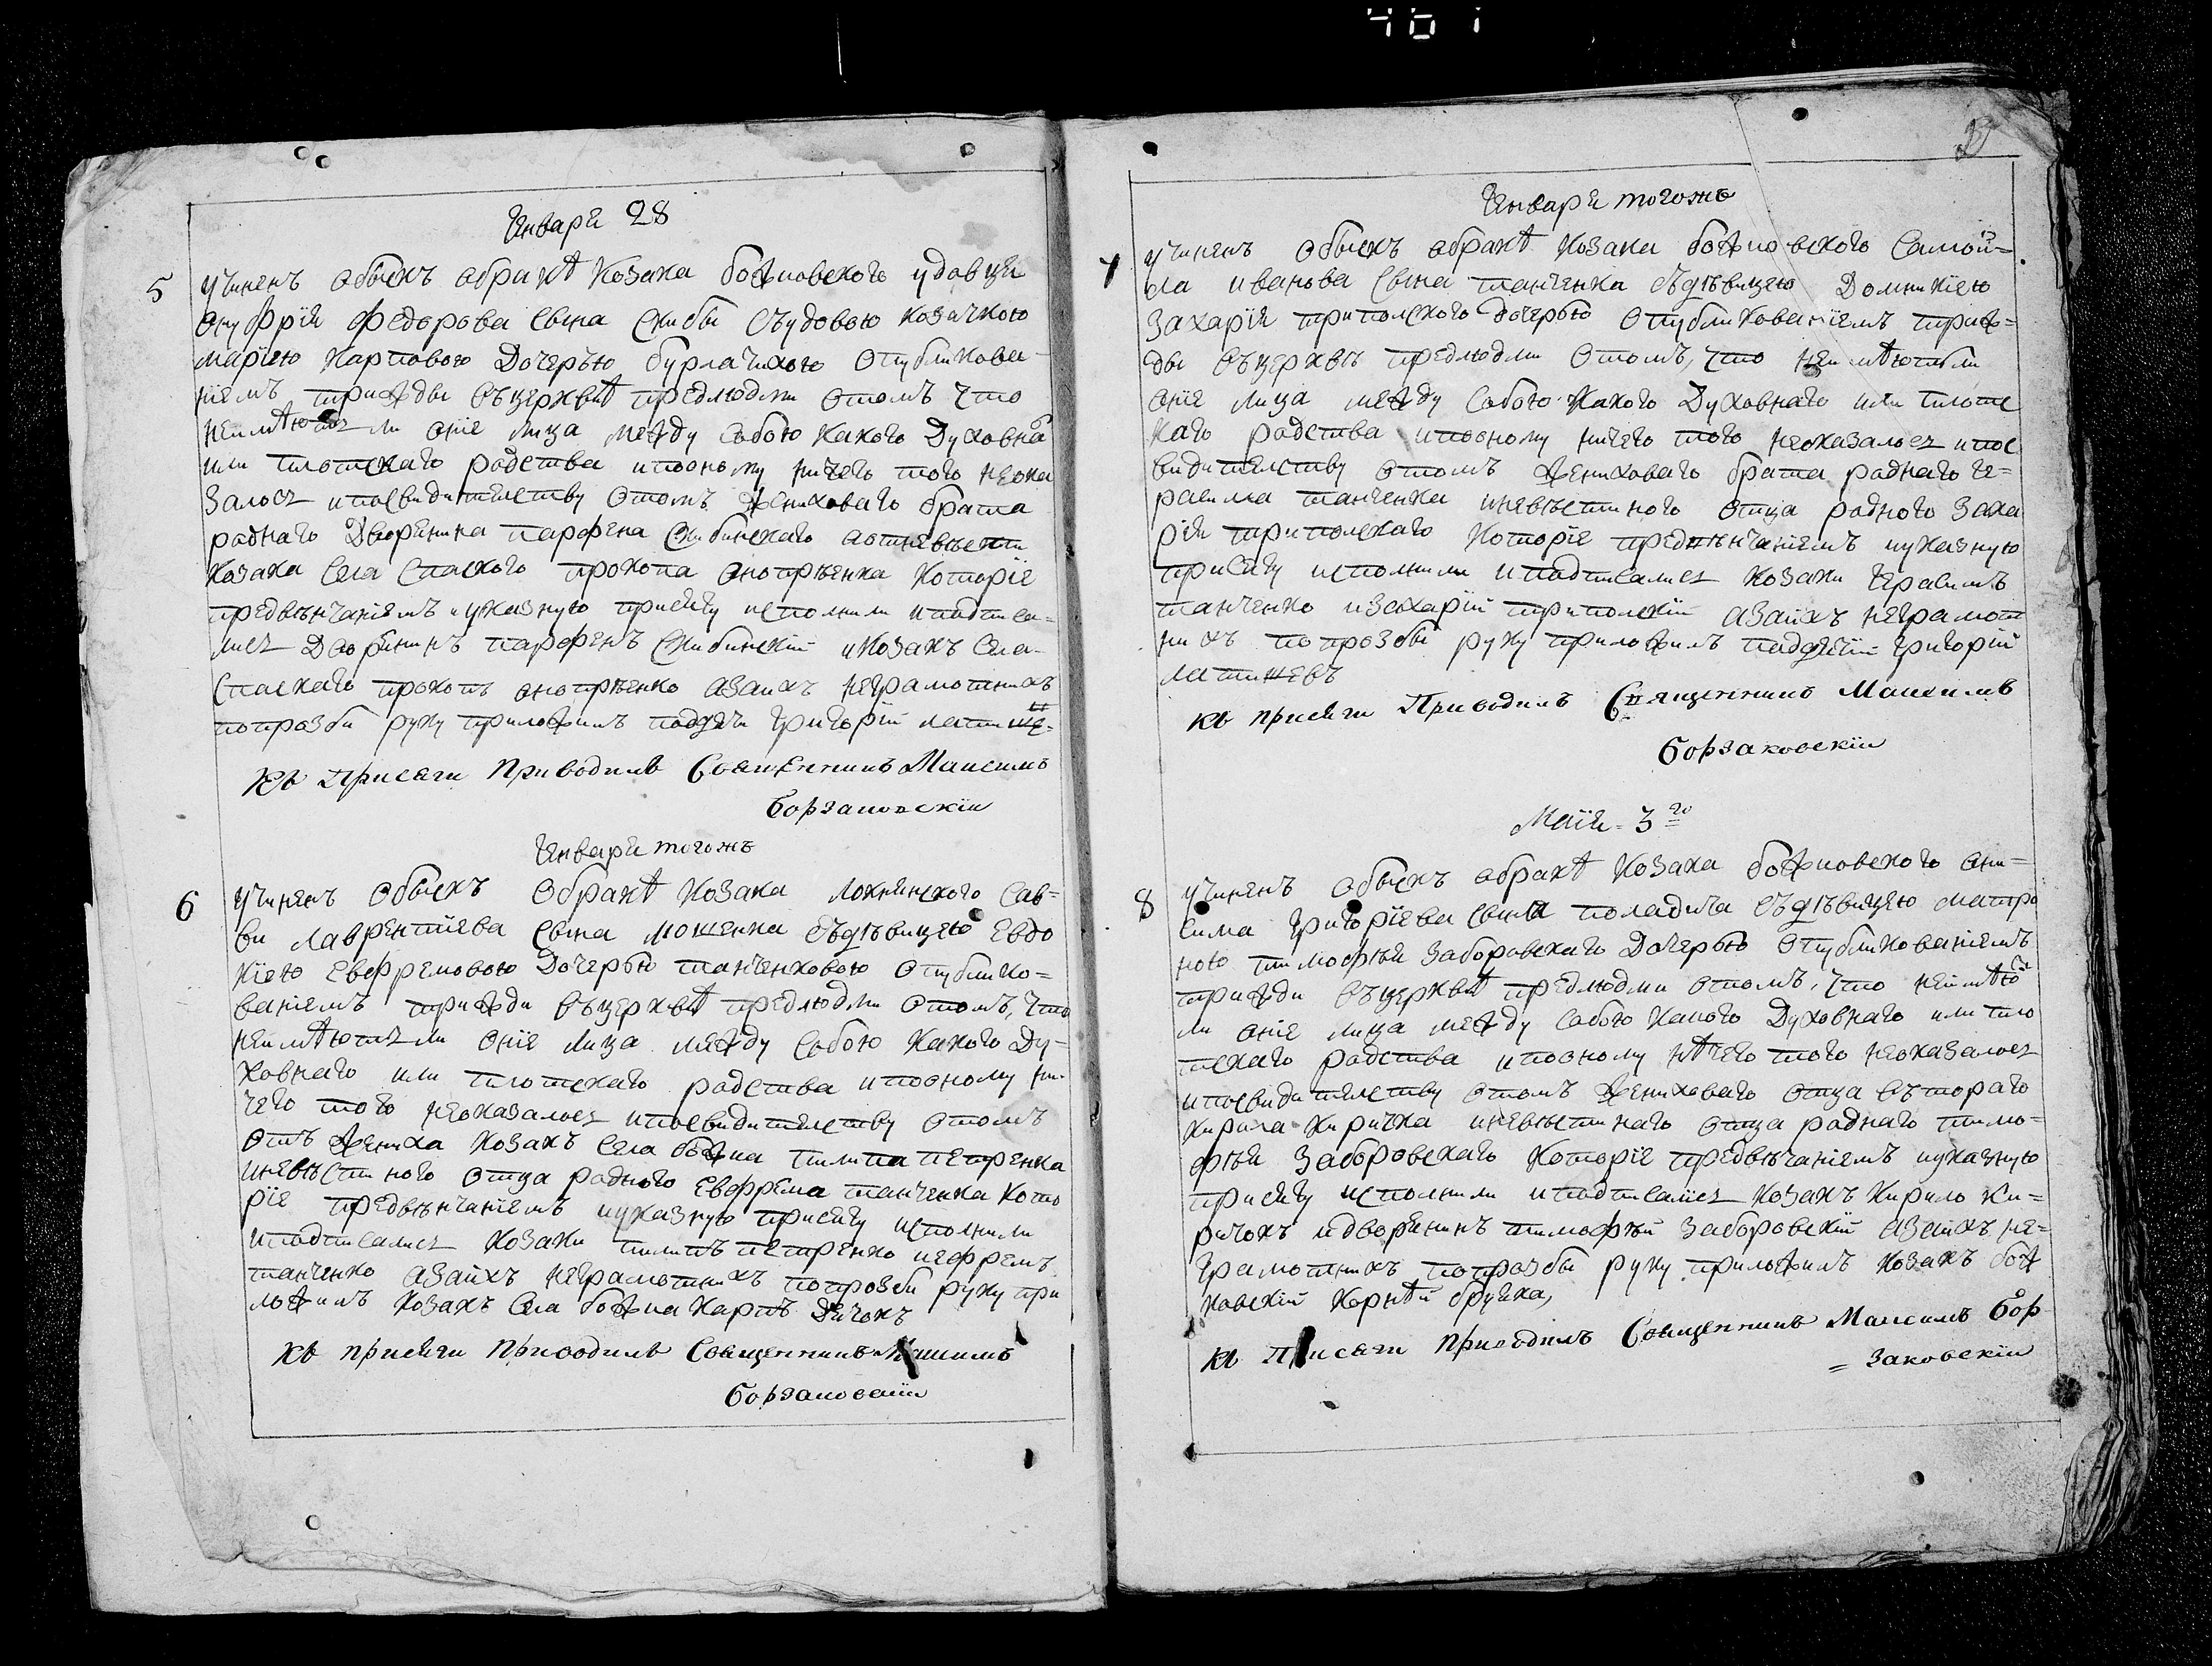 Января 28
5 Учиненъ обыскъ обракѣ козака божковского удовца
Онуфрія Федорова сына Скибы съудовою козачкою
маріею Карповою дочерью бурлачихою опубликова-
ніемъ трижды въцерквѣ предлюдми отомъ что
неимѣютъ ли оніе лица между собою какого духовнаго
или плотскаго родства ипооному ничего того неока
залось ипосвидителству отомъ жениховаго брата
роднаго дворянина парфена Скибинскаго аотневести
козака села Спаского прокопа онопріенка которіе
предвѣнчаніемъ иуказную присягу исполнили иподписа-
лись дворянинъ парфенъ Скибинскій икозакъ села
Спаскаго прокопъ онопріенко азаихъ неграмотнихъ
попрозби руку приложилъ подячи григорій
Къ Присяги Приводилъ Священникъ Максимъ
Борзаковскіи
Января тогожъ
6 Учиненъ обыскъ обракѣ козака локнянского Сав-
ви лаврентіева сына мошенка съдѣвицею Евдо
кіею Евфремовою дочерью танченковою опублико-
ваніемъ трижди въцерквѣ предлюдми отомъ, что
неимѣютъ ли оніе лица между собою какого ду-
ховнаго или плотскаго родства ипооному ни-
чего того неоказалось ипосвидителству отомъ
отъ жениха козакъ села божка пилипа петренка
иневѣстиного отца родного Евфрема танченка кото
ріе предвѣнчаніемъ иуказную присягу исполнили
иподписались козаки пилипъ петренко иефремъ
танченко азаихъ неграмотнихъ попрозби руку при
ложилъ козакъ села божка Карпъ Дячокъ
Къ присяги Приводилъ Священникъ Максимъ
Борзаковскіи
Января тогожъ
7 Учиненъ обыскъ обракѣ козака божковского Самой-
ла иванова сына танченка съдѣвицею Домникіею
Захарія триполского дочерью опубликованіемъ триж-
ды въцерквѣ предлюдми отомъ, что неимѣютъли
оніе лица между собою какого духовнаго или плотс
каго родства ипооному ничего того неоказалось ипос
видителству отомъ жениховаго брата роднаго ге-
расима танченка иневѣстиного отца родного Заха
рія триполскаго которіе предвѣнчаніемъ иуказную
присягу исполнили иподписались козаки герасимъ
танченко изахарій триполскій азаихъ неграмот
нихъ попрозби руку приложилъ подячій григорій
Къ присяги Приводилъ Священникъ Максимъ
Борзаковскіи
Маія 3го
8 Учиненъ обыскъ обракѣ козака божковского они-
сима григоріева сына поладича съдѣвицею матро
ною тимофѣя заборовскаго дочерью опубликованіемъ
трижди въцерквѣ предлюдми отомъ, что неимѣютъ
ли оніе лица между собою какого духовнаго или пло
тскаго родства ипооному нѣчего того неоказалось
ипосвидителству отомъ жениховаго отца вътораго
Кирила Киричка иневѣстинаго отца роднаго тимо-
фѣя Заборовскаго которіе предвѣнчаніемъ иуказную
присягу исполнили иподписались козакъ Кирило Ки-
ричокъ идворянинъ тимофѣй заборовскій азаихъ не-
грамотнихъ попрозби руку приложилъ козакъ бож
ковскій Корнѣй
Къ Присяги Приводилъ Священникъ Максимъ Бор-
=заковскіи